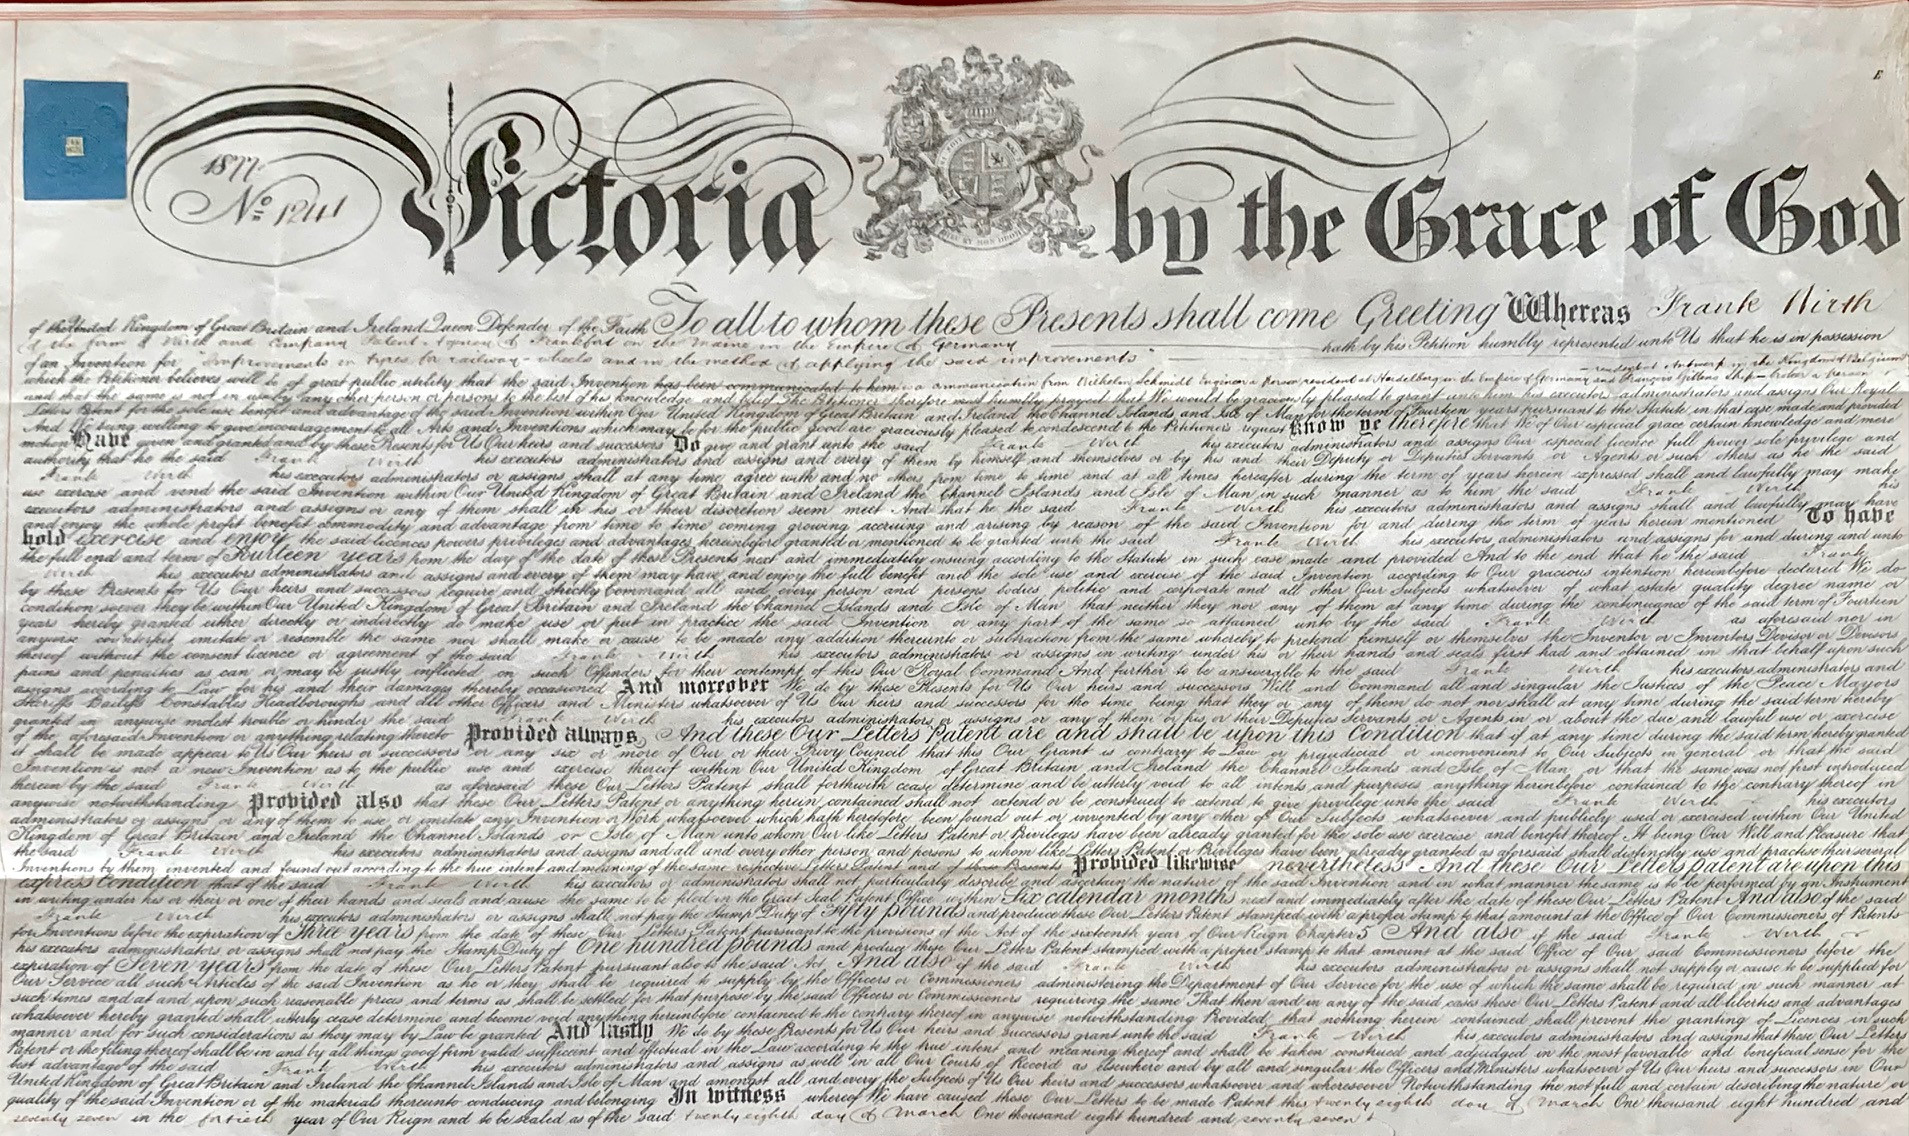 E
1877
No 1241
Victoria by the Grace of God
of the United Kingdom of Great Britain and Ireland Queen Defender of the Faith To all to whom these Presents shall come Greeting Whereas Frank Wirth
of the firm of Wirth and Company Patent Agents of Frankfort on the Maine in the Empire of Germany hath by his Petition humbly represented unto Us that he is in possession
of an Invention for "improvements in tyres for railway-wheels and in the method of applying the said improvements"
resident at Antwerp in the Kingdom of Belgium
which the Petitioner believes will be of great public utility that the said Invention has been communicated to him is a communication from Wilhelm Schmidt Engineer a person resident at Heidelberg in the Empire of Germany and François Gillens Ship-broker a person
and that the same is not in use by any other person or persons to the best of his knowledge and belief The Petitioner therefore most humbly prayed that We would be graciously pleased to grant unto him his executors administrators and assigns Our Royal
Letters Patent for the sole use benefit and advantage of the said Invention within Our United Kingdom of Great Britain and Ireland the Channel Islands and Isle of Man for the term of Fourteen years pursuant to the Statute in that case made and provided
And We being willing to give encouragement to all Arts and Inventions which may be for the public good are graciously pleased to condescend to the Petitioner's request Know ye therefore that We of Our especial grace certain knowledge and mere
motion Have given and granted and by these Presents for Us Our heirs and successors Do give and grant unto the said Frank Wirth his executors administrators and assigns Our especial licence full power sole privilege and
authority that he the said Frank Wirth his executors administrators and assigns and every of them by himself and themselves or by his and their Deputy or Deputies Servants or Agents or such others as he the said
Frank Wirth his executors administrators or assigns shall at any time agree with and no others from time to time and at all times hereafter during the term of years herein expressed shall and lawfully may make
use exercise and vend the said Invention within Our United Kingdom of Great Britain and Ireland the Channel Islands and Isle of Man in such manner as to him the said Frank Wirth his
executors administrators and assigns or any of them shall in his or their discretion seem meet And that he the said Frank Wirth his executors administrators and assigns shall and lawfully may have
and enjoy the whole profit benefit commodity and advantage from time to time coming growing accruing and arising by reason of the said Invention for and during the term of years herein mentioned To have
hold exercise and enjoy the said licences powers privileges and advantages hereinbefore granted or mentioned to be granted unto the said Frank Wirth his executors administrators and assigns for and during and unto
the full end and term of Fourteen years from the day of the date of these Presents next and immediately ensuing according to the Statute in such case made and provided And to the end that he the said Frank
Wirth his executors administrators and assigns and every of them may have and enjoy the full benefit and the sole use and exercise of the said Invention according to Our gracious intention hereinbefore declared We do
by these Presents for Us Our heirs and successors require and strictly Command all and every person and persons bodies politic and corporate and all other Our Subjects whatsoever of what estate quality degree name or
condition soever they be within Our United Kingdom of Great Britain and Ireland the Channel Islands and Isle of Man that neither they nor any of them at any time during the continuance of the said term of Fourteen
years hereby granted either directly or indirectly do make use or put in practice the said Invention or any part of the same so attained unto by the said Frank Wirth as aforesaid nor in
anywise counterfeit imitate or resemble the same nor shall make or cause to be made any addition thereunto or subtraction from the same whereby to pretend himself or themselves the Inventor or Inventors Devisor or Devisors
thereof without the consent licence or agreement of the said Frank Wirth his executors administrators or assigns in writing under his or their hands and seals first had and obtained in that behalf upon such
pains and penalties as can or may be justly inflicted on such Offenders for their contempt of this Our Royal Command And further to be answerable to the said Frank Wirth his executors administrators and
assigns according to Law for his and their damages thereby occasioned And moreover We do by these Presents for Us Our heirs and successors Will and Command all and singular the Justices of the Peace Mayors
Sheriffs Bailiffs Constables Headboroughs and all other Officers and Ministers whatsoever of Us Our heirs and successors for the time being that they or any of them do not nor shall at any time during the said term hereby
granted in anywise molest trouble or hinder the said Frank Wirth his executors administrators or assigns or any of them or his or their Deputies Servants or Agents in or about the due and lawful use or exercise
of the aforesaid Invention or anything relating thereto Provided always And these Our Letters Patent are and shall be upon this Condition that if at any time during the said term hereby granted
it shall be made appear to Us Our heirs or successors or any six or more of Our or their Privy Council that this Our Grant is contrary to Law or prejudicial or inconvenient to Our Subjects in general or that the said
Invention is not a new Invention as to the public use and exercise thereof within Our United Kingdom of Great Britain and Ireland the Channel Islands and Isle of Man or that the same was not first introduced
herein by the said Frank Wirth as aforesaid these Our Letters Patent shall forthwith cease determine and be utterly void to all intents and purposes anything hereinbefore contained to the contrary thereof in
anywise notwithstanding Provided also that these Our Letters Patent or anything herein contained shall not extend or be construed to extend to give privilege unto the said Frank Wirth his executors
administrators or assigns or any of them to use or imitate any Invention or Work whatsoever which hath heretofore been found out or invented by any other of Our Subjects whatsoever and publicly used or exercised within Our United
Kingdom of Great Britain and Ireland the Channel Islands or Isle of Man unto whom Our like Letters Patent or Privileges have been already granted for the sole use exercise and benefit thereof It being Our Will and Pleasure that
the said Frank Wirth his executors administrators and assigns and all and every other person and persons to whom like Letters Patent or Privileges have been already granted as aforesaid shall distinctly use and practise their several
Inventions by them invented and found out according to the true intent and meaning of the same respective Letters Patent and of these Presents Provided likewise nevertheless And these Our Letters patent are upon this
express condition that if the said Frank Wirth his executors or administrators shall not particularly describe and ascertain the nature of the said Invention and in what manner the same is to be performed by an Instrument
in writing under his or their or one of their hands and seals and cause the same to be filed in the Great Seal Patent Office within Six calendar months next and immediately after the date of these Our Letters Patent And also if the said
Frank Wirth his executors administrators or assigns shall not pay the Stamp Duty of Fifty pounds and produce these Our Letters Patent stamped with a proper stamp to that amount at the Office of Our Commissioners of Patents
for Inventions before the expiration of Three years from the date of these Our Letters Patent pursuant to the provisions of the Act of the sixteenth year of Our Reign Chapter 5 And also if the said Frank Wirth or
his executors administrators or assigns shall not pay the Stamp Duty of One hundred pounds and produce these Our Letters Patent stamped with a proper stamp to that amount at the said Office of Our said Commissioners before the
expiration of Seven years from the date of these Our Letters Patent pursuant also to the said Act And also if the said Frank Wirth his executors administrators or assigns shall not supply or cause to be supplied for
Our Service all such Articles of the said Invention as he or they shall be required to supply by the Officers or Commissioners administering the Department of Our Service for the use of which the same shall be required in such manner at
such times and at and upon such reasonable prices and terms as shall be settled for that purpose by the said Officers or Commissioners requiring the same That then and in any of the said cases these Our Letters Patent and all liberties and advantages
whatsoever hereby granted shall utterly cease determine and become void anything hereinbefore contained to the contrary thereof in anywise notwithstanding Provided that nothing herein contained shall prevent the granting of Licences in such
manner and for such considerations as they may by Law be granted And lastly We do by these Presents for Us Our heirs and successors grant unto the said Frank Wirth his executors administrators and assigns that these Our Letters
Patent or the filing thereof shall be in and by all things good firm valid sufficient and effectual in the Law according to the true intent and meaning thereof and shall be taken construed and adjudged in the most favorable and beneficial sense for the
best advantage of the said Frank Wirth his executors administrators and assigns as well in all Our Courts of Record as elsewhere and by all and singular the Officers and Ministers whatsoever of Us Our heirs and successors in Our
United Kingdom of Great Britain and Ireland the Channel Islands and Isle of Man and amongst all and every the Subjects of Us Our heirs and successors whatsoever and wheresoever Notwithstanding the not full and certain describing the nature or
quality of the said Invention or of the materials thereunto conducing and belonging In witness whereof We have caused these Our Letters to be made Patent this twenty eighth day of March One thousand eight hundred and
seventy seven in the fortieth year of Our Reign and to be sealed as of the said twenty eighth day of March One thousand eight hundred and seventy seven